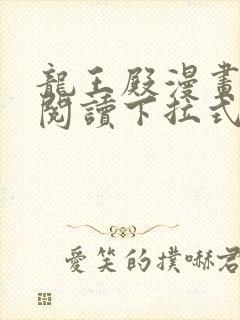 龍王殿漫畫
閱讀下拉式
愛笑的撲嚇君